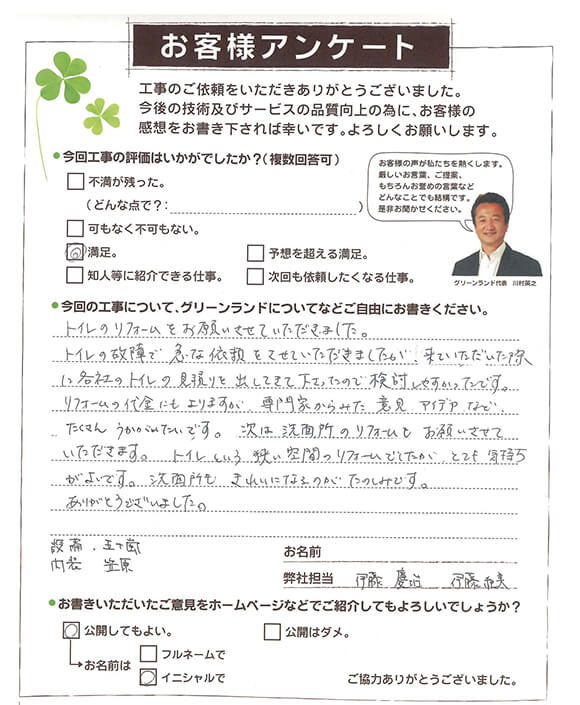 お客様アンケート
工事のご依頼をいただきありがとうございました。
今後の技術及びサービスの品質向上の為に、お客様の
感想をお書き下されば幸いです。よろしくお願いします。
●今回工事の評価はいかがでしたか?(複数回答可)
不満が残った。
(どんな点で?: )
可もなく不可もない。
満足。
予想を超える満足。
知人等に紹介できる仕事。
次回も依頼したくなる仕事。
お客様の声が私たちを熱くします。
厳しいお言葉、ご提案、
もちろんお誉めの言葉など
どんなことでも結構です。
是非お聞かせください。
グリーンランド代表 川村英之
●今回の工事について、グリーンランドについてなどご自由にお書きください。
トイレのリフォームをお願いさせていただきました。
トイレの故障で急な依頼をさせていただきましたが、来ていただいた際
に各社のトイレの見積りを出してきて下さったので検討しやすかったです。
リフォームの代金にもよりますが、専門家からみた意見、アイデアなど、
たくさんうかがいたいです。次は洗面所のリフォームもお願いさせて
いただきます。トイレという狭い空間のリフォームでしたが、とても気持ち
がよいです。洗面所もきれいになるのがたのしみです。
ありがとうございました。
設備 五十嵐
内装 笠原
お名前
弊社担当 伊藤 伊藤
●お書きいただいたご意見をホームページなどでご紹介してもよろしいでしょうか?
公開してもよい。
公開はダメ。
お名前は
フルネームで
イニシャルで
ご協力ありがとうございました。